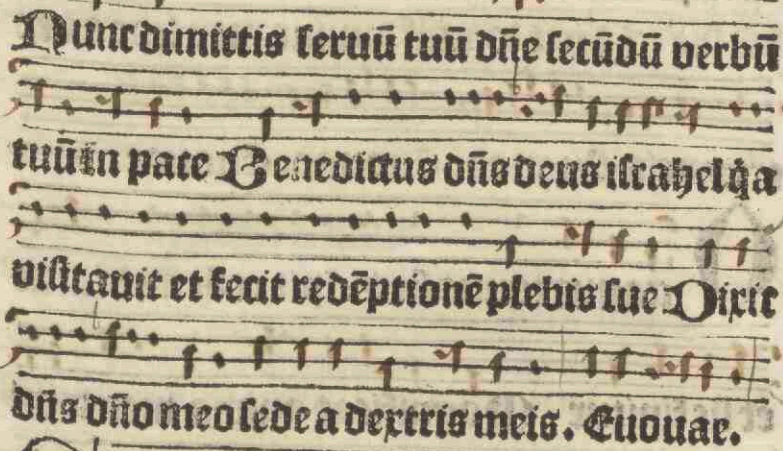 Nunc dimittis ſeruū tuū dn̄e ſecūdū verbū
tuū in pace Benedictus dn̄s deus iſrahel q̄a
viſitauit et fecit redēptionē plebis ſue Dixit
dn̄s dn̄o meo ſede a dextris meis. Euouae.